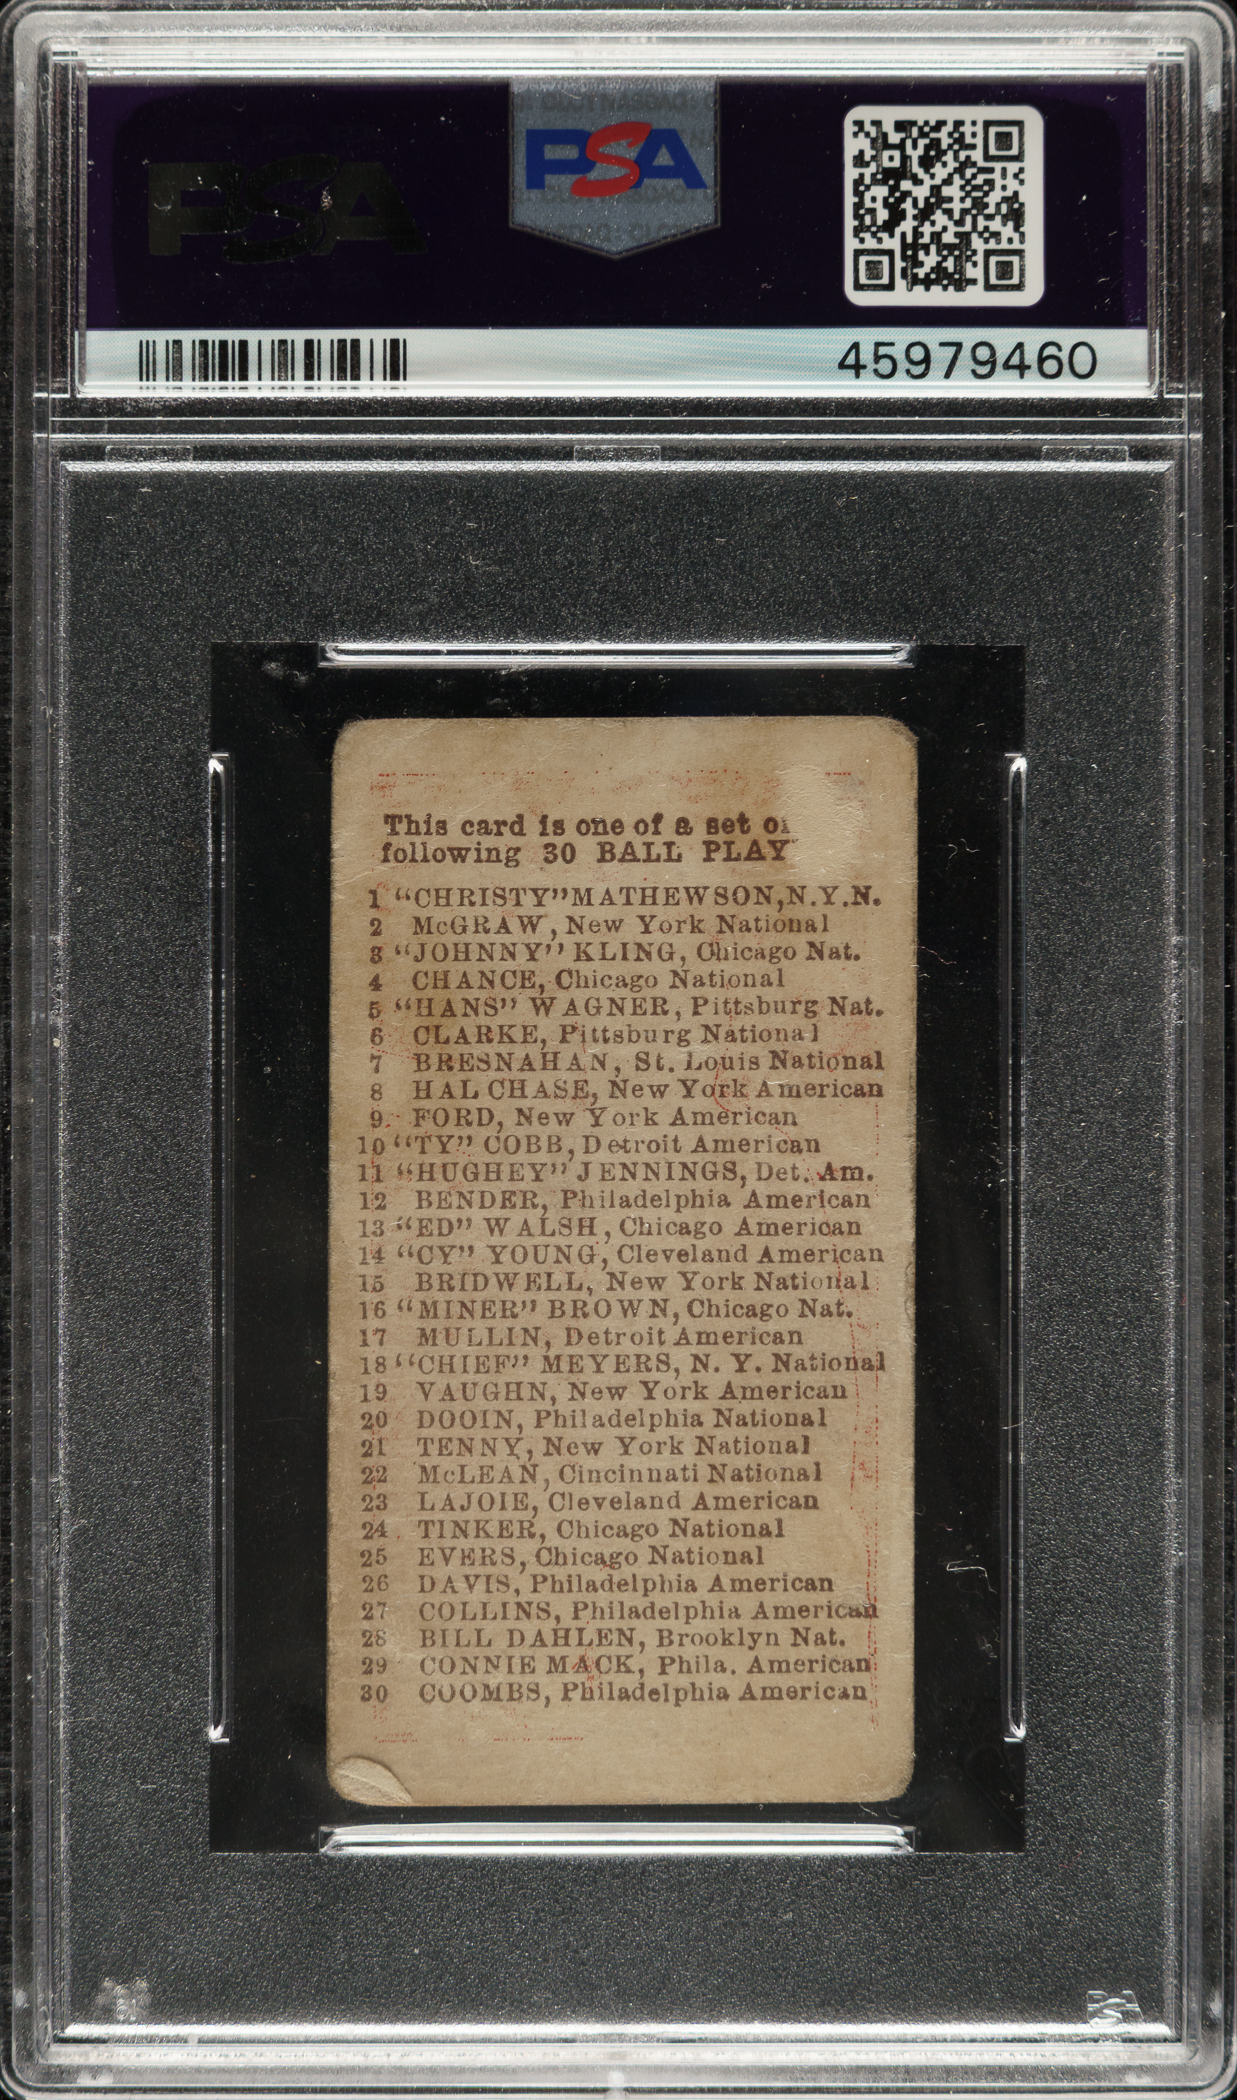 PSA
PSA
45979460
This card is one of a set
following 30 BALL PLAY
1 “CHRISTY” MATHEWSON, N.Y.N.
2 McGRAW, New York National
3 “JOHNNY” KLING, Chicago Nat.
4 CHANCE, Chicago National
5 “HANS” WAGNER, Pittsburg Nat.
6 CLARKE, Pittsburg National
7 BRESNAHAN, St. Louis National
8 HAL CHASE, New York American
9 FORD, New York American
10 “TY” COBB, Detroit American
11 “HUGHEY” JENNINGS, Det. Am.
12 BENDER, Philadelphia American
13 “ED” WALSH, Chicago American
14 “CY” YOUNG, Cleveland American
15 BRIDWELL, New York National
16 “MINER” BROWN, Chicago Nat.
17 MULLIN, Detroit American
18 “CHIEF” MEYERS, N. Y. National
19 VAUGHN, New York American
20 DOOIN, Philadelphia National
21 TENNY, New York National
22 McLEAN, Cincinnati National
23 LAJOIE, Cleveland American
24 TINKER, Chicago National
25 EVERS, Chicago National
26 DAVIS, Philadelphia American
27 COLLINS, Philadelphia American
28 BILL DAHLEN, Brooklyn Nat.
29 CONNIE MACK, Phila. American
30 COOMBS, Philadelphia American
PSA